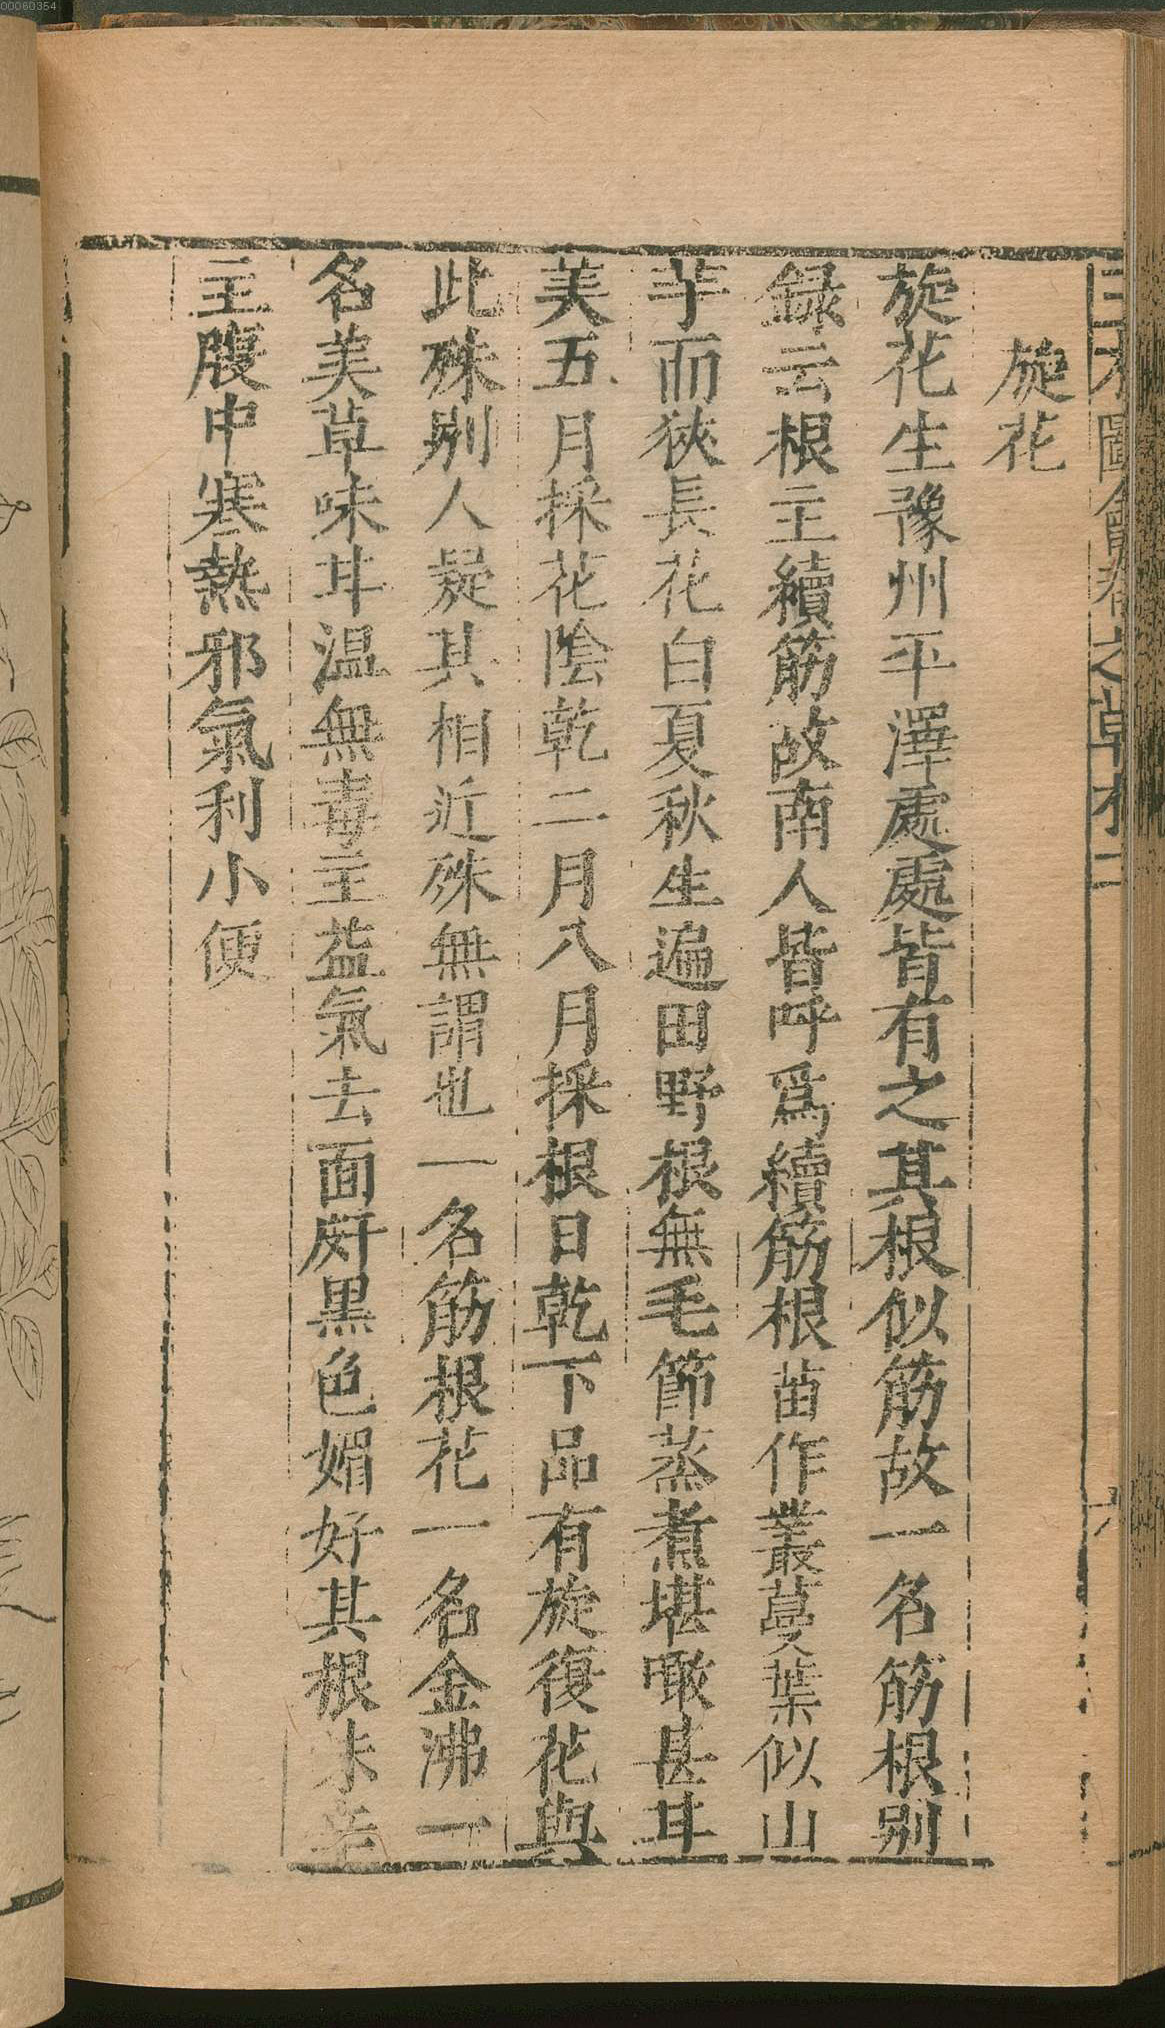 00060354
三才圖會卷之草木二
旋花
旋花生豫州平澤處處皆有之其根似筋故一名筋根別
録云根主續筋故南人皆呼爲續筋根苗作叢蔓葉似山
芋而狹長花白夏秋生遍田野根無毛節蒸煮堪噉甚甘
美五月採花陰乾二月八月採根日乾下品有旋復花與
此殊別人疑其相近殊無謂也一名筋根花一名金沸一
名美草味甘温無毒主益氣去面皯黒色媚好其根味辛
主腹中寒熱邪氣利小便